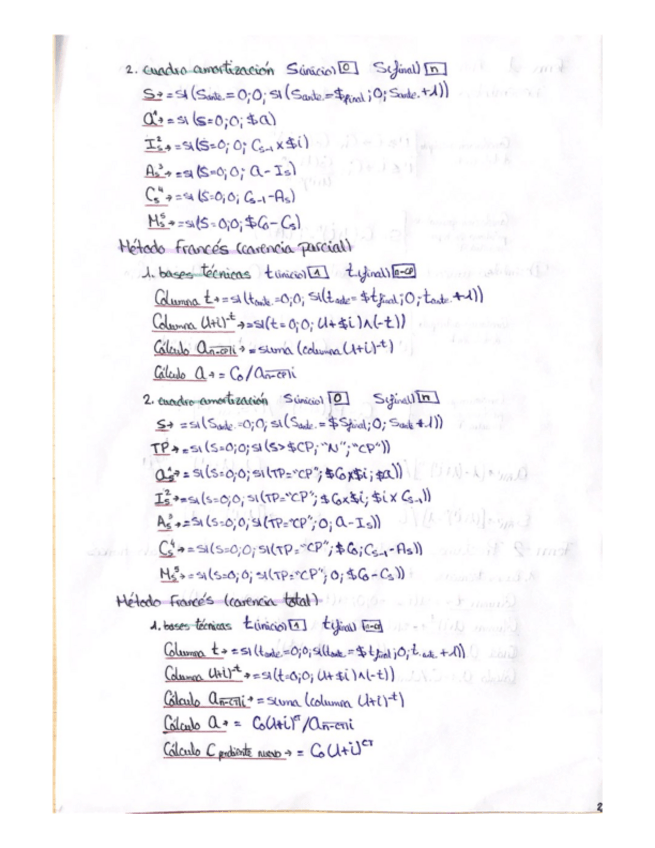 2. cuadro amortización S(inicio) 0 S(final) n
S→ = SI(Sante. = 0;0; SI(Sante.= $final; 0; Sante. + 1))
a¹s→ = SI(S=0;0; $a)
I²s→ = SI(S=0; 0; Cs-1 x $i)
As³→ = SI(S=0; 0; a - Is)
Cs⁴→ = SI(S=0;0; Cs-1 - As)
Ms⁵→ = SI(S=0;0; $C0 - Cs)
Método Francés (carencia parcial)
1. bases técnicas t(inicio) 1 t(final) n-CP
Columna t→ = SI(tante. =0;0; SI(tante = $tfinal; 0; tante + 1))
Columna (1+i)^-t → = SI(t=0; 0; (1+$i)^(-t))
Cálculo an-CP¬i → = suma (columna (1+i)^-t)
Cálculo a→ = C0/an-CP¬i
2. cuadro amortización S(inicio) 0 S(final) n
S→ = SI(Sante. =0;0; SI(Sante. = $Sfinal; 0; Sante + 1))
TP→ = SI(S=0;0; SI(S>$CP; "N"; "CP"))
as¹→ = SI(S=0;0; SI(TP="CP"; $C0x$i; $a))
Is²→ = SI(S=0;0; SI(TP="CP"; $C0x$i; $i x Cs-1))
As³→ = SI(S=0;0; SI(TP="CP"; 0; a - Is))
Cs⁴→ = SI(S=0;0; SI(TP="CP"; $C0; Cs-1 - As))
Ms⁵→ = SI(S=0;0; SI(TP="CP"; 0; $C0 - Cs))
Método Francés (carencia total)
1. bases técnicas t(inicio) 1 t(final) n-CT
Columna t→ = SI(tante. =0;0; SI(tante. = $tfinal; 0; tante + 1))
Columna (1+i)^-t → = SI(t=0; 0; (1+$i)^(-t))
Cálculo an-CT¬i → = suma (columna (1+i)^-t)
Cálculo a→ = C0(1+i)^CT/an-CT¬i
Cálculo C pendiente nuevo → = C0(1+i)^CT
2